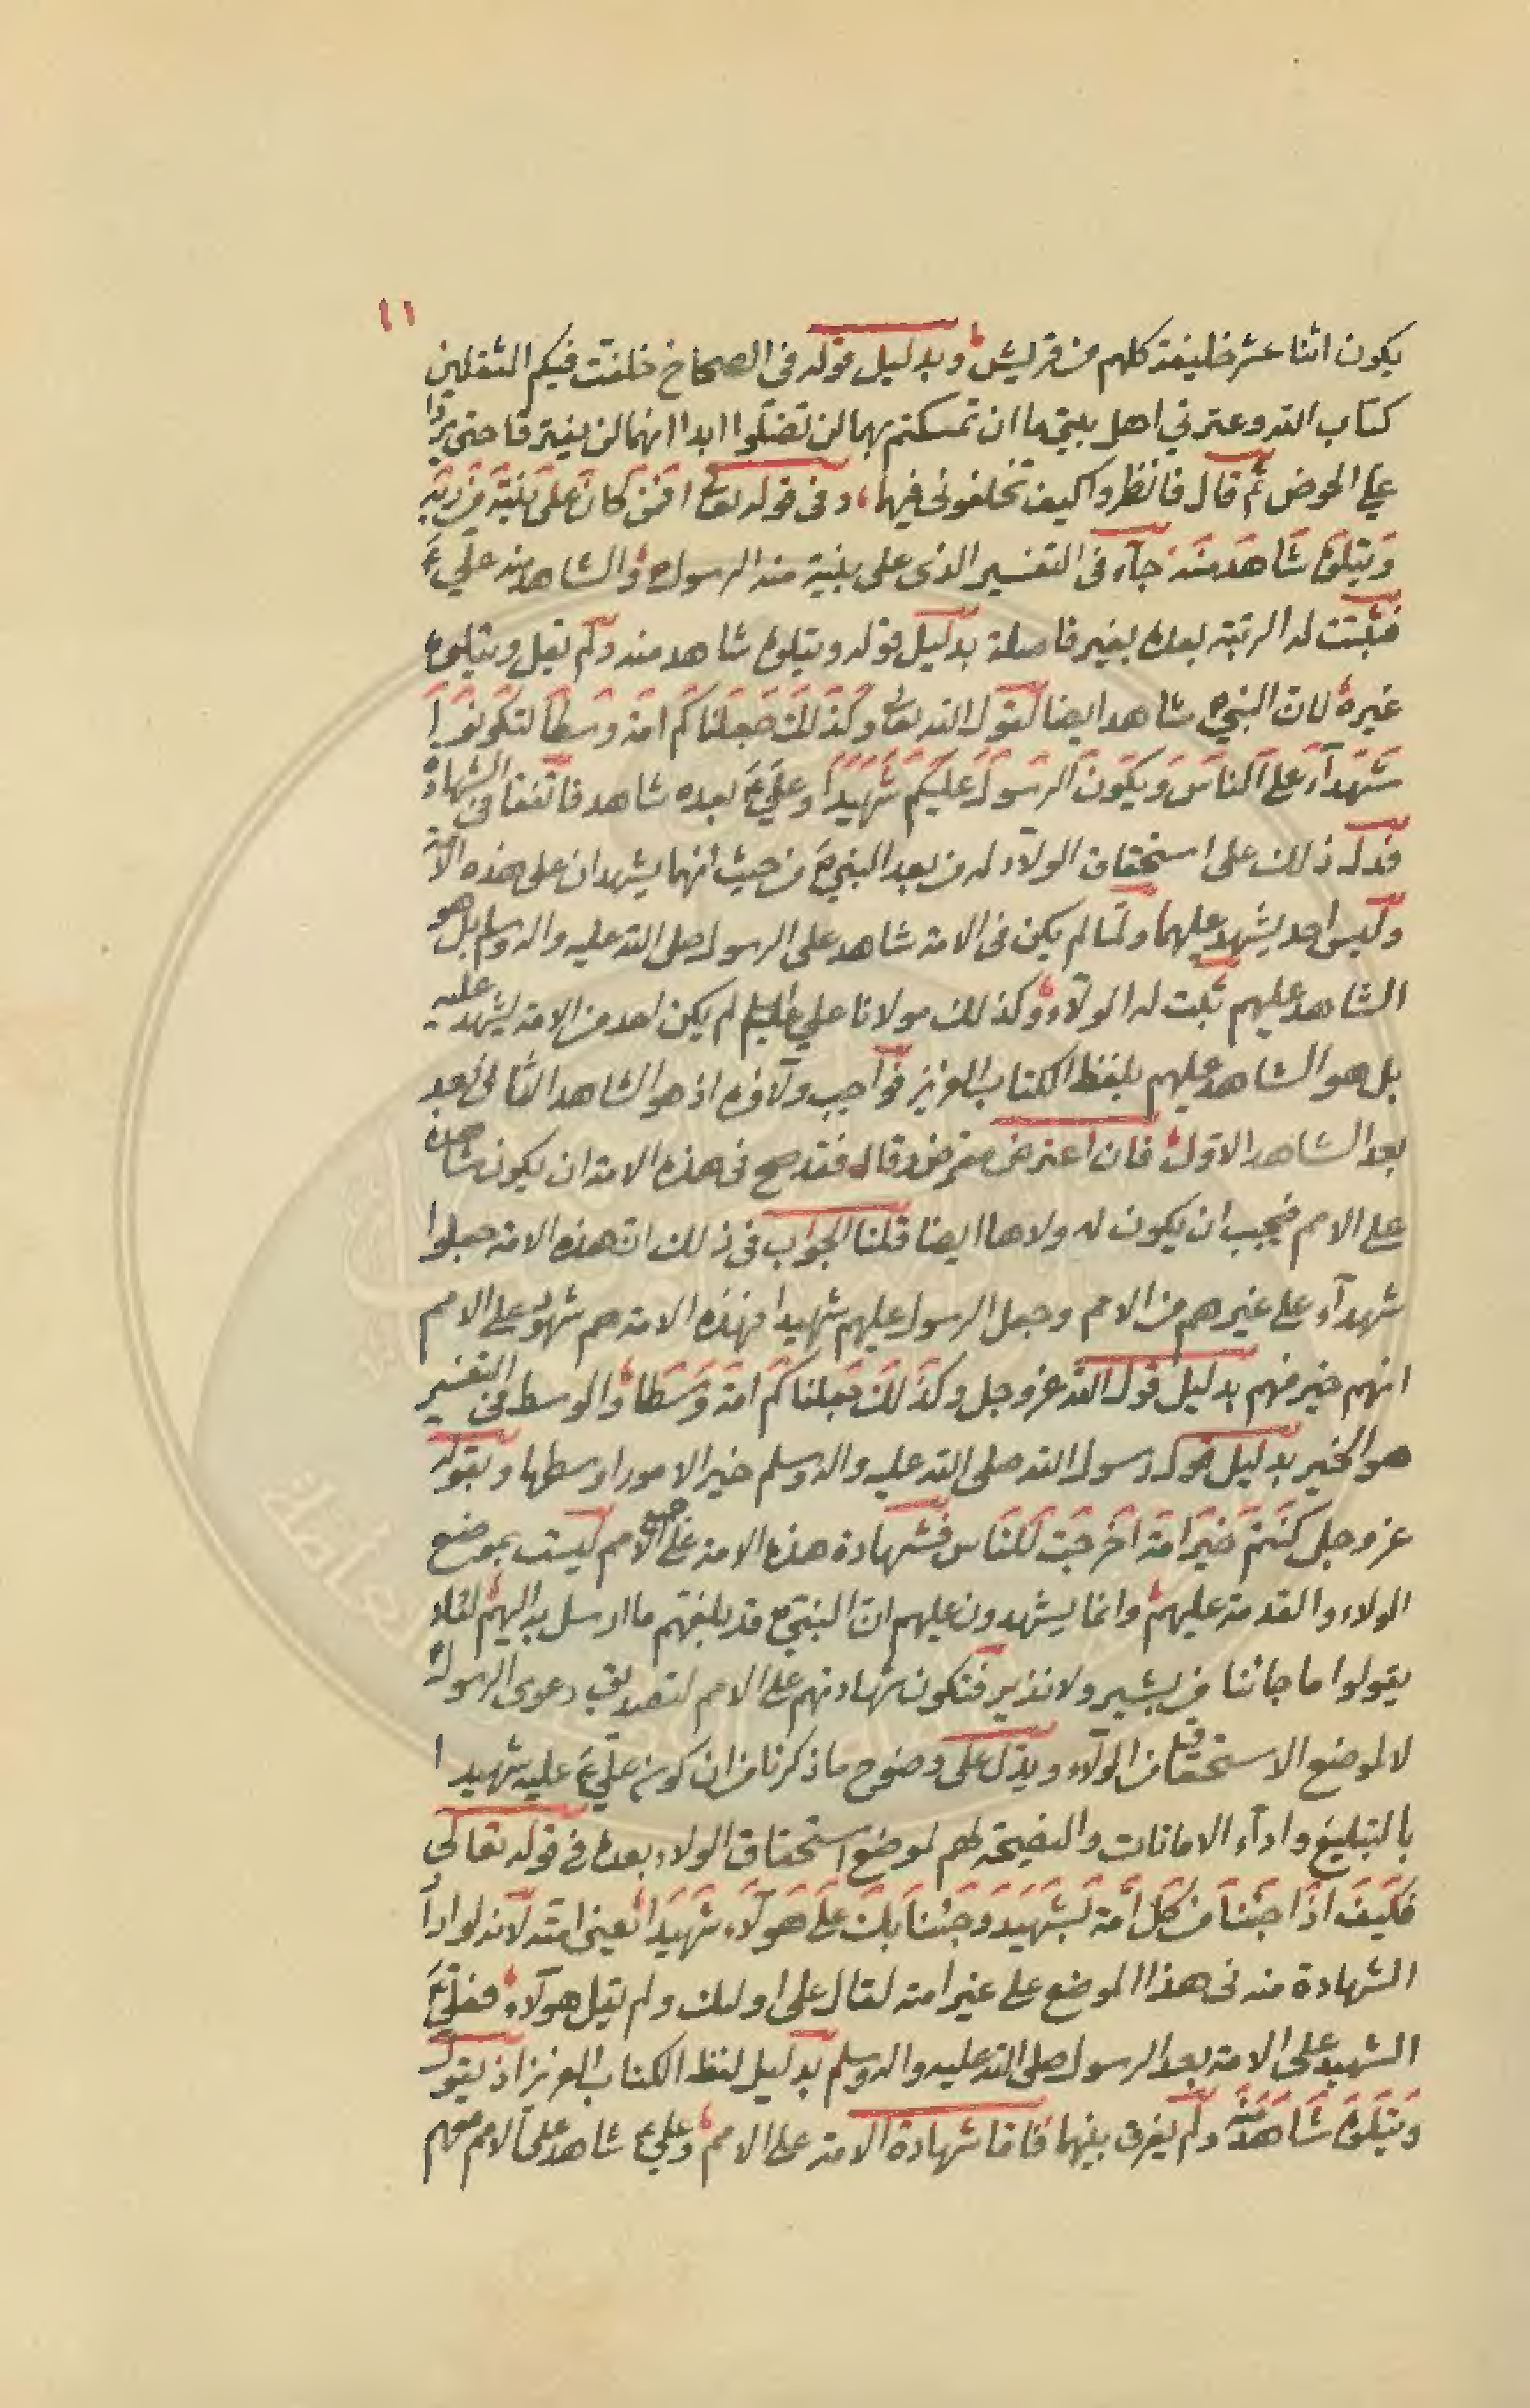 ١١
يكون اثنا عشر خليفة كلهم من قريش وبدليل قوله فى الصحاح خلفت فيكم الثقلين
كتاب الله وعترتي اهل بيتي ما ان تمسكتم بهما لن تضلوا ابدا انهما لن يفترقا حتى يردا
علي الحوض ثم قال فانظروا كيف تخلفونى فيهما وفى قوله تعا افمن كان على بينة من ربه
ويتلوه شاهد منه جآء فى التفسير الذى على بينة منه الرسول والشاهد منه علي ع
فثبتت له الرتبة بعده بغير فاصلة بدليل قوله ويتلوه شاهد منه ولم يقل ويتلوه
غيره لان النبي ص شاهد ايضا لقول الله تعا وكذلك جعلناكم امة وسطا لتكونوا
شهدآء على الناس ويكون الرسول عليكم شهيدا وعلي ع بعده شاهد فاتفقا فى الشهادة
فدل ذلك على استحقاق الولآء له من بعد النبي ص من حيث انهما يشهدان على هذه الامة
وليس احد يشهد عليهما ولما لم يكن فى الامة شاهد على الرسول صلى الله عليه واله وسلم بل هو
الشاهد عليهم ثبت له الولآء وكذلك مولانا علي عليلم لم يكن احد من الامة يشهد عليه
بل هو الشاهد عليهم بلفظ الكتاب العزيز فواجب ولاؤه اذ هو الشاهد الثانى بعد
بعد الشاهد الاول فان اعترض معترض وقال فقد صح فى هذه الامة ان يكون شاهدة
على الامم فيجب ان يكون له ولاها ايضا قلنا الجواب فى ذلك ان هذه الامة جعلوا
شهدآء على غيرهم من الامم وجعل الرسول عليهم شهيدا فهذه الامة هم شهود على الامم
انهم خير منهم بدليل قول الله عز وجل وكذلك جعلناكم امة وسطا والوسط فى التفسير
هو الخير بدليل قول رسول الله صلى الله عليه واله وسلم خير الامور اوسطها وبقوله
عز وجل كنتم خير امة اخرجت للناس فشهادة هذه الامة على جميع الامم ليست بموضع
الولاء والقدمة عليهم وانما يشهدون عليهم ان النبي ص قد بلغهم ما ارسل به اليهم لئلا
يقولوا ما جائنا من بشير ولا نذير فتكون شهادتهم على الامم لتصديق دعوى الرسول
لا لموضع الاستحقاق من الولآء ويدل على وضوح ما ذكرنا من ان كونه علي ع عليه شهيدا
بالتبليغ وادآء الامانات والنصيحة لهم لموضع استحقاق الولاء بعده فى قوله تعالى
فكيف اذا جئنا من كل امة بشهيد وجئنا بك على هولآء شهيدا يعنى امته لانه لو اراد
الشهادة منه فى هذا الموضع على غير امته لقال على اولئك ولم يقل هولآء فعلي ع
الشهيد على الامة بعد الرسول صلى الله عليه واله وسلم بدليل لفظ الكتاب العزيز اذ يقول
ويتلوه شاهد منه ولم يفرق بينهما فاما شهادة الامة على الامم وعلي ع شاهد على الامم معهم